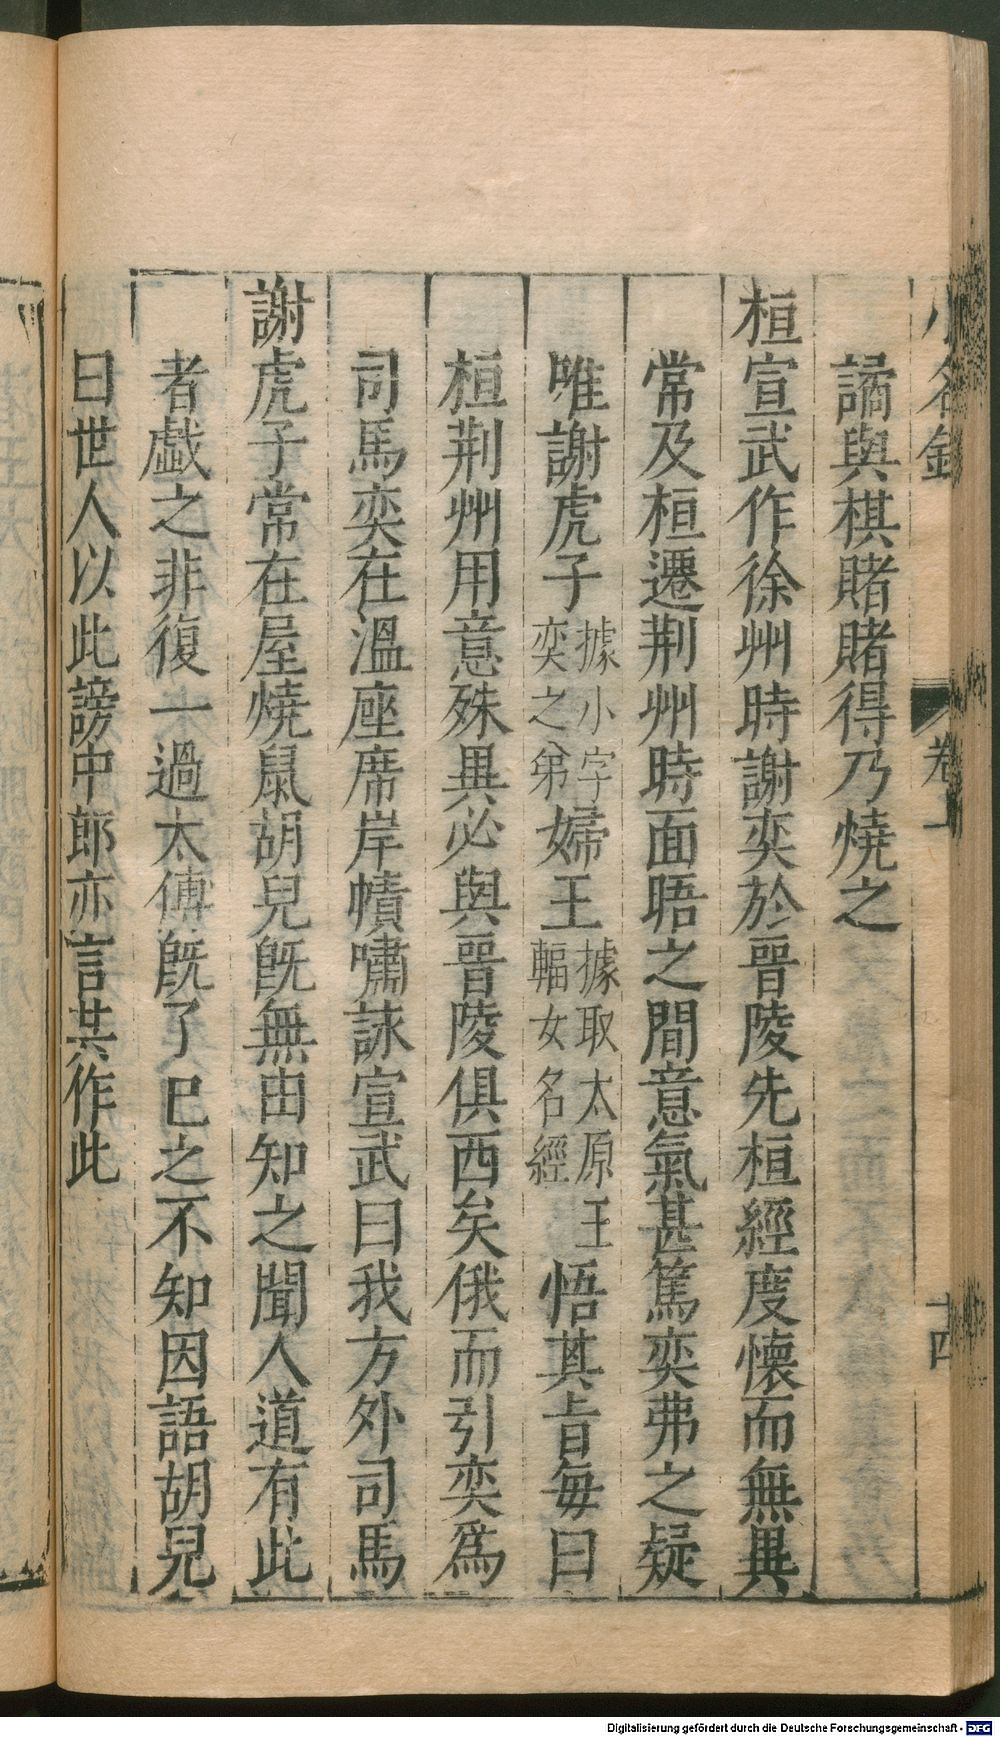 小名錄 卷上 十四
譎與棋賭賭得乃燒之
桓宣武作徐州時謝奕於晉陵先桓經度懷而無異
常及桓遷荆州時面晤之間意氣甚篤奕弗之疑
唯謝虎子據小字奕之弟婦王據取太原王輻女名經悟其旨每曰
桓荆州用意殊異必與晉陵俱西矣俄而引奕爲
司馬奕在溫座席岸幘嘯詠宣武曰我方外司馬
謝虎子常在屋燒鼠胡兒旣無由知之聞人道有此
者戲之非復一過太傅旣了巳之不知因語胡兒
曰世人以此謗中郎亦言其作此
Digitalisierung gefördert durch die Deutsche Forschungsgemeinschaft - DFG